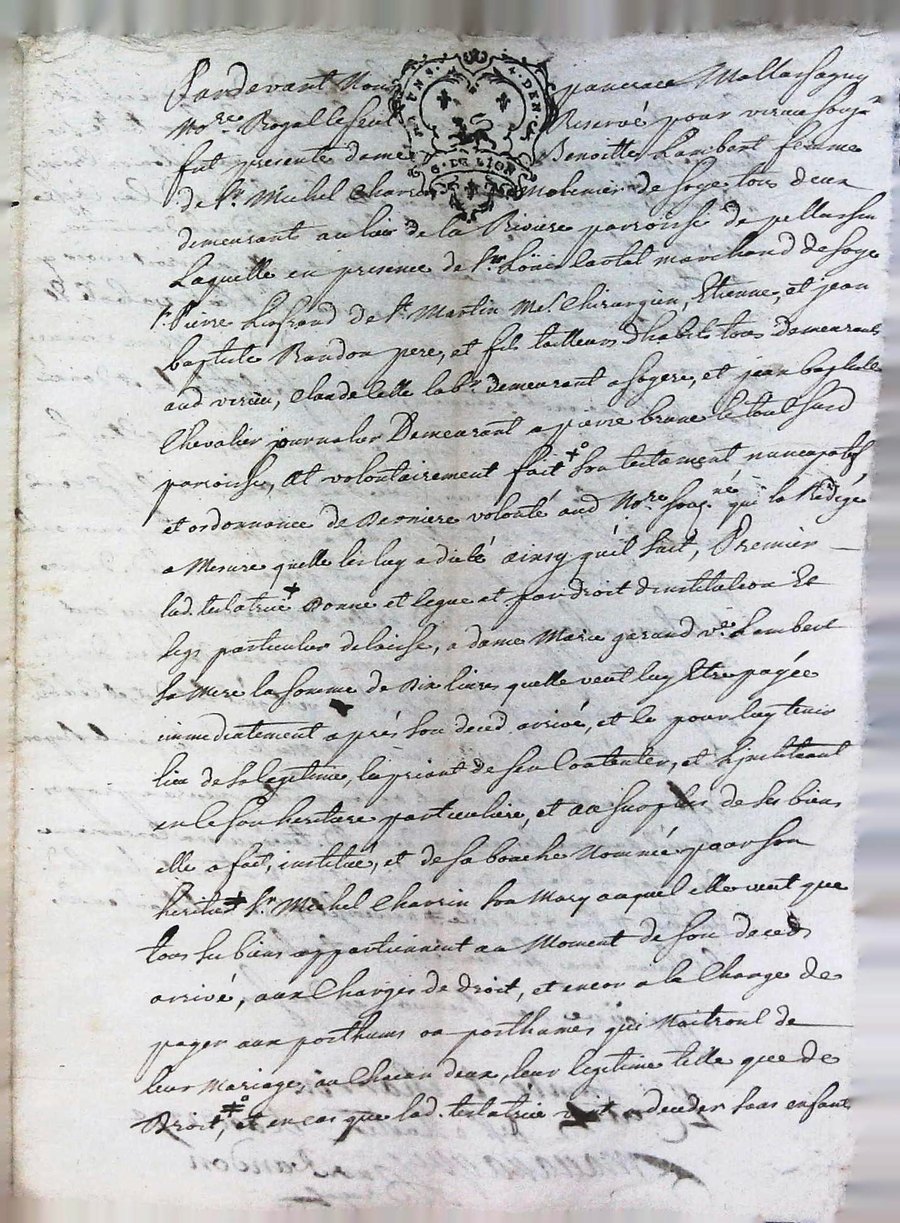 Pardevant Nous pancrace Mallassagny
No.re Royal Reservé pour virieu soug.né
fut presente dame Benoitte Lambert femme
de S.r Michel Charrin Molinier de soye tous deux
demeurant au lieu de la Riviere parroisse de pellussin
Laquelle en presence de S.r Loüis lantel marchand de soye
S.r Pierre de S.t Martin M.e Chirurgien, Etienne, et jean
baptiste Randon pere, et fils tailleurs dhabits tous demeurants
aud virieu, Claude celle lab.r demeurant a sogere, et jean baptiste
Chevalier journalier Demeurant a pierre brune le tout susd
parroisse, At volontairement fait + son testament nuncupatif
et ordonnance de Derniere volonté aud No.re soug.né qui la Redigé
a Mesure quelle les luy a dicté ainsy qu'il suit, Premier
lad. testatrice + Donne et legue et par droit dinstitution Et
legs particulier delaisse, a dame Marie garand v.e Lambert
sa Mere la somme de Dix livres quelle veut luy Etre payée
immediatement aprés son deced arrivé, et ce pour luy tenir
lieu de sa legitime, la priant de sen Contenter, et linstituant
en ce son heritiere particuliere, et au surplus de ses biens
elle a fait, institué, et de sa bouche Nommé pour son
heritier + S.r Michel Charrin son Mary auquel elle veut que
tous ses biens appartiennent au Moment de son deceds
arrivé, aux Charges de droit, et encor a la Charge de
payer aux posthums ou posthumes qui Naitront de
leur Mariage, au Chacun deux, leur legitime telle que de
Droit, et en cas que lad. testatrice vint a deceder sans enfants
G. DE LION